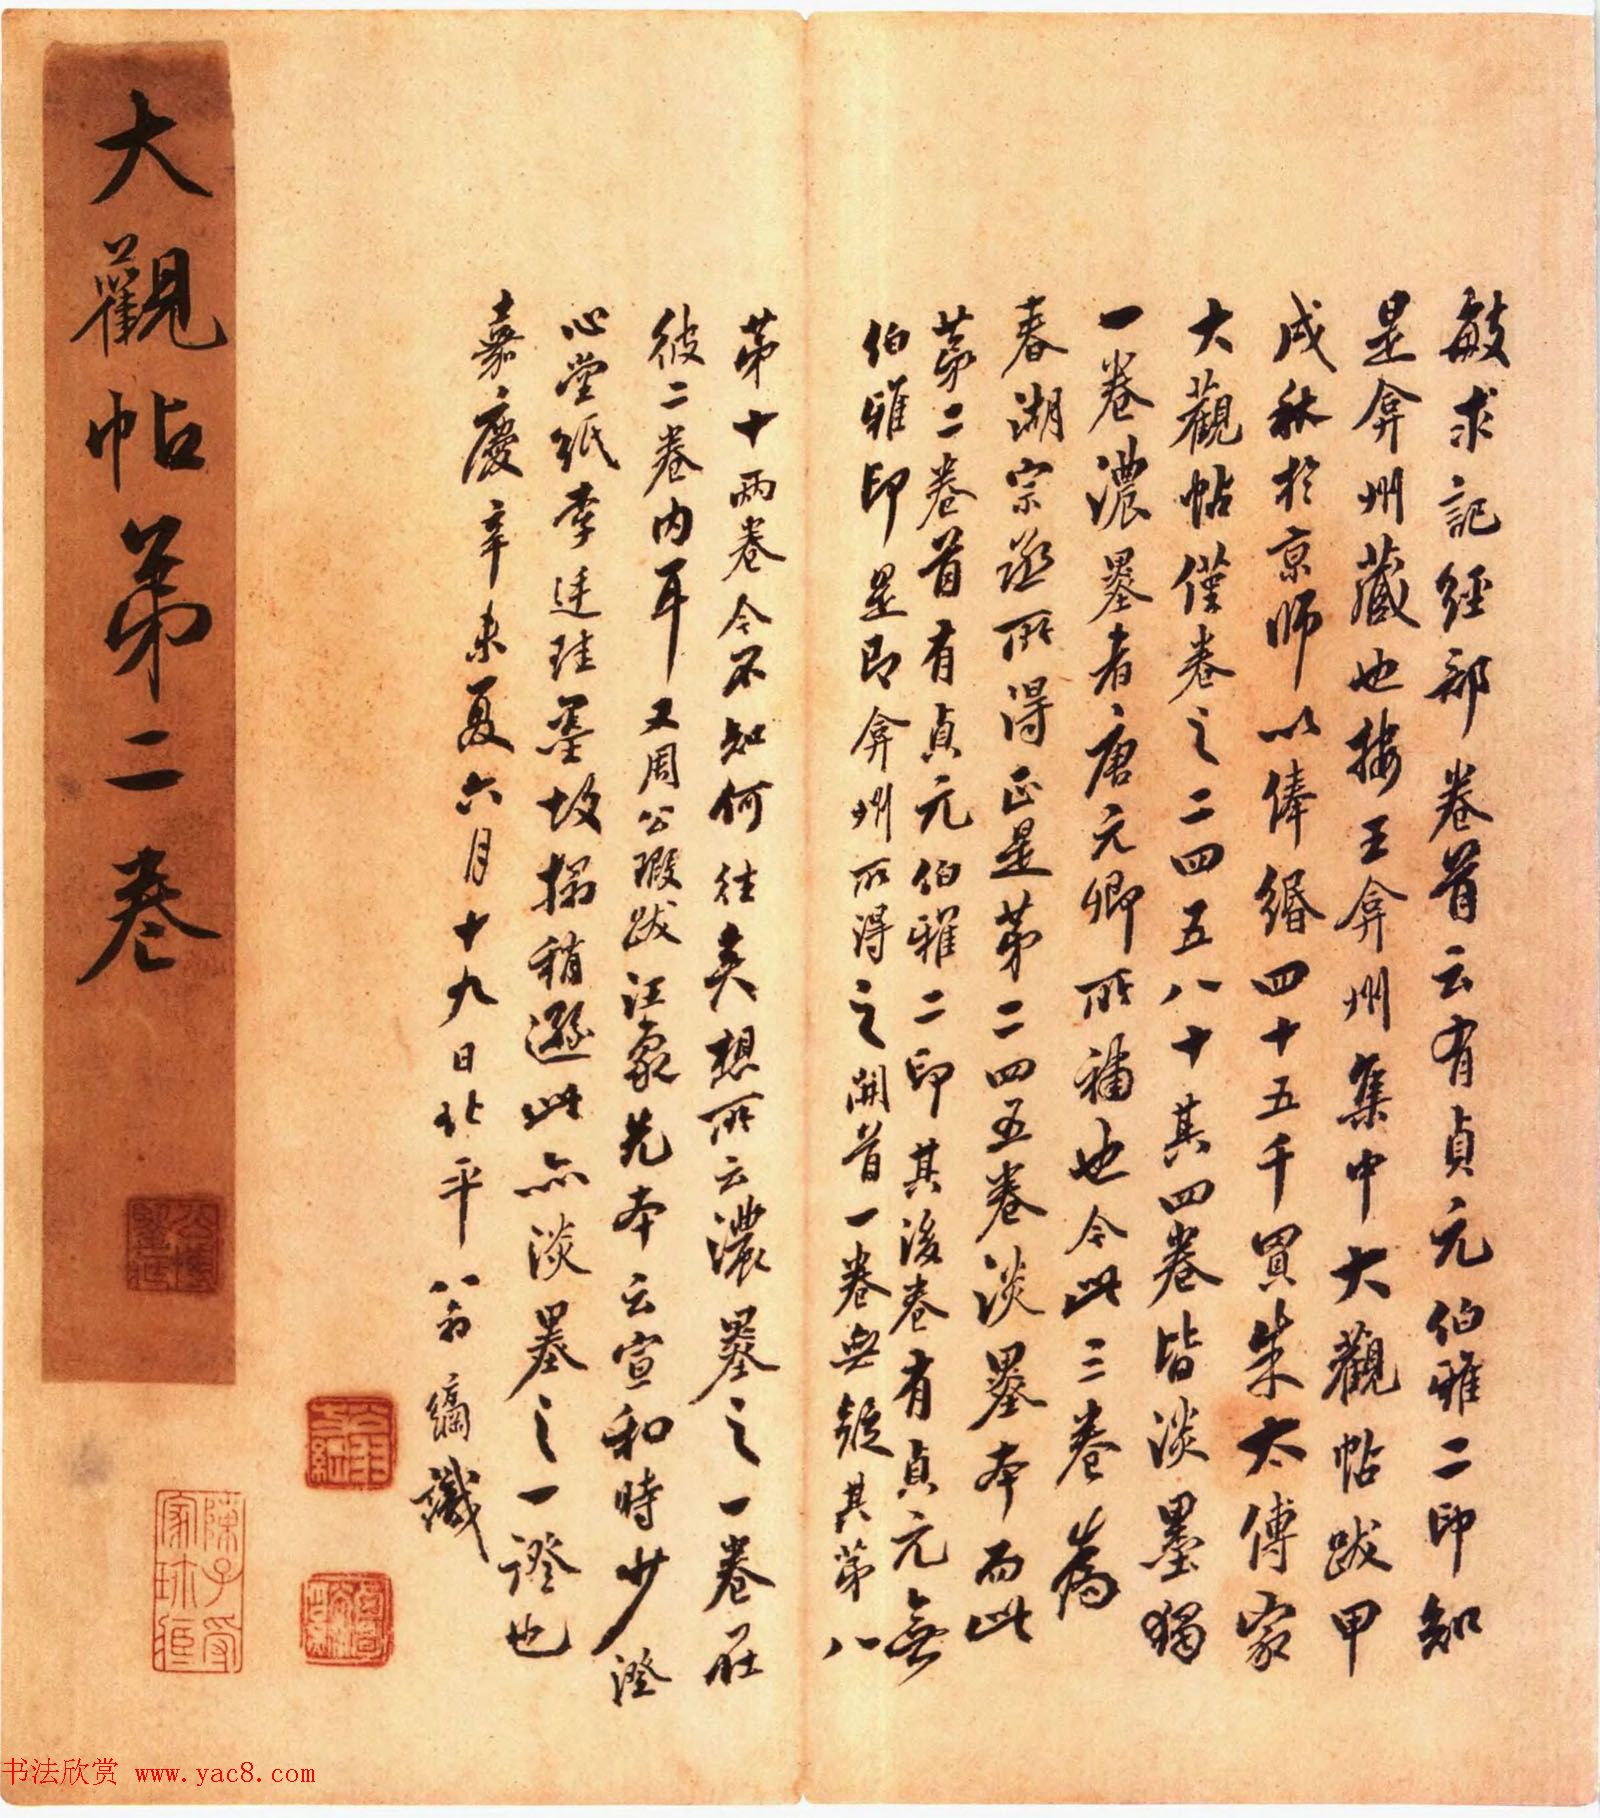 敏求記經部卷首云有貞元伯雅二印知
是弇州藏也接王弇州集中大觀帖跋甲
戍秋於京師以俸緡四十五千買朱太傅家
大觀帖僅卷之二四五八十其四卷皆淡墨獨
一卷濃墨者唐元卿所補也今此三卷為
春湖宗丞所得正是第二四五卷淡墨本而此
第二卷首有貞元伯雅二印其後卷有貞元無
伯雅印是即弇州所得之開首一卷無疑其第八
第十兩卷今不知何往矣想所云濃墨之一卷在
彼二卷内耳又周公瑕跋汪象先本云宣和時少澄
心堂紙李廷珪墨故搨稍遜此亦淡墨之一證也
嘉慶辛未夏六月十九日北平翁方綱識
大觀帖第二卷
陳子受
家珍藏
书法欣赏 www.yac8.com